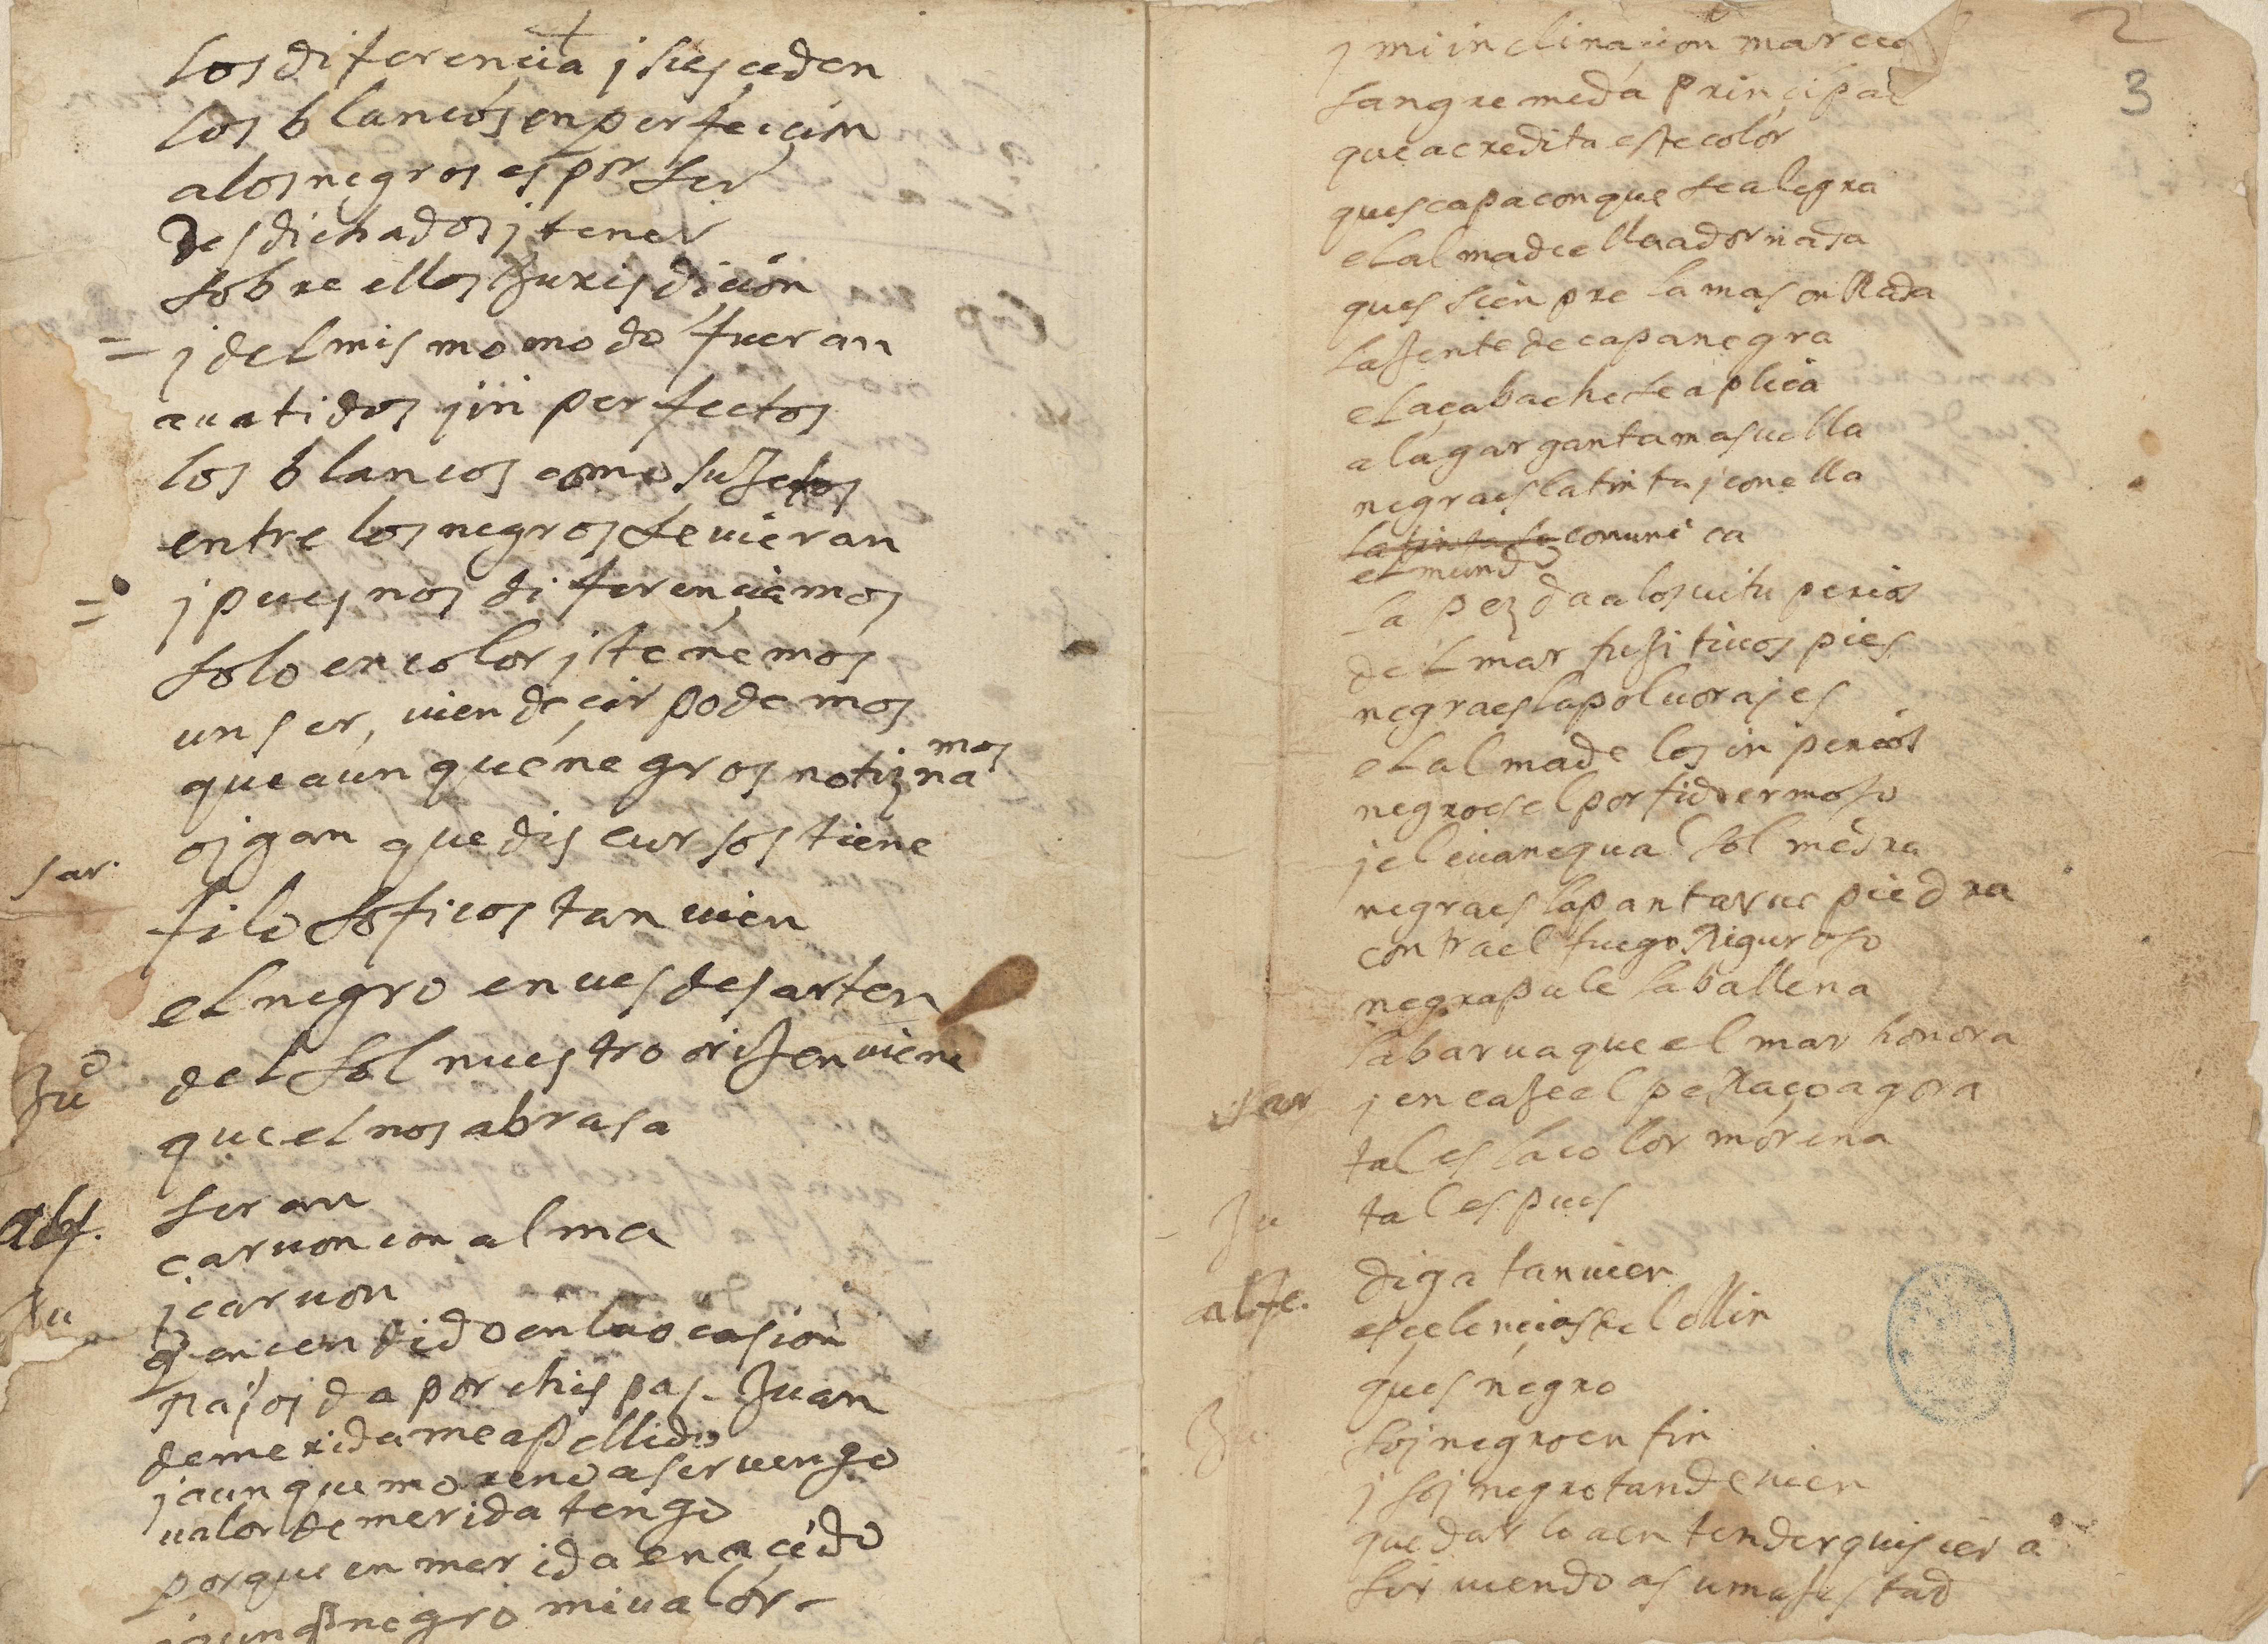 los diferencia j si esceden
los blancos en perfecion
a los negros es por ser
desdichados j tener
sobre ellos jurisdicion
j del mismo modo fueran
auatidos j inperfectos
los blancos como sujetos
entre los negros se uieran
j pues nos diferenciamos
solo en color j tenemos
un ser, uien decir podemos
que aunque negros no tiznamos
sar.
ojgan que discursos tiene
filosoficos tanuien
el negro en ues de sarten
Juo
del sol nuestro orijen uiene
que el nos abrasa
alf.
seran
caruon con alma
Ju
j caruon
q encendido en la ocasion
rajos da por chispas. Juan
de merida me apellido
j aunque moreno a ser uengo
ualor de merida tengo
porque en merida e nacido
j aunq negro mi ualor
2
3
j mi inclinacion marcial
sangre me da principal
que acredita este color
ques capa con que se alegra
el alma de ella adornada
ques sienpre la mas onRada
la jente de capa negra
el açabache se aplica
a la garganta mas uella
negra es la tinta j con ella
la tinta se comunica
el mundo
la pez da a los uituperios
del mar fujitiuos pies
negra es la poluora j es
el alma de los inperios
negro es el porfido ermoso
j el euano qual sol medra
negra es la pantarue piedra
contra el fuego Riguroso
negra pule la ballena
la barua que el mar honora
sar
j encaje el peRaço agora
tal es la color morena
Ju
tal es pues
alfe.
diga tanuien
escelencias del ollin
ques negro
Ju
soj negro en fin
j soj negro tan de uien
que darlo a entender quisiera
siruiendo a su majestad